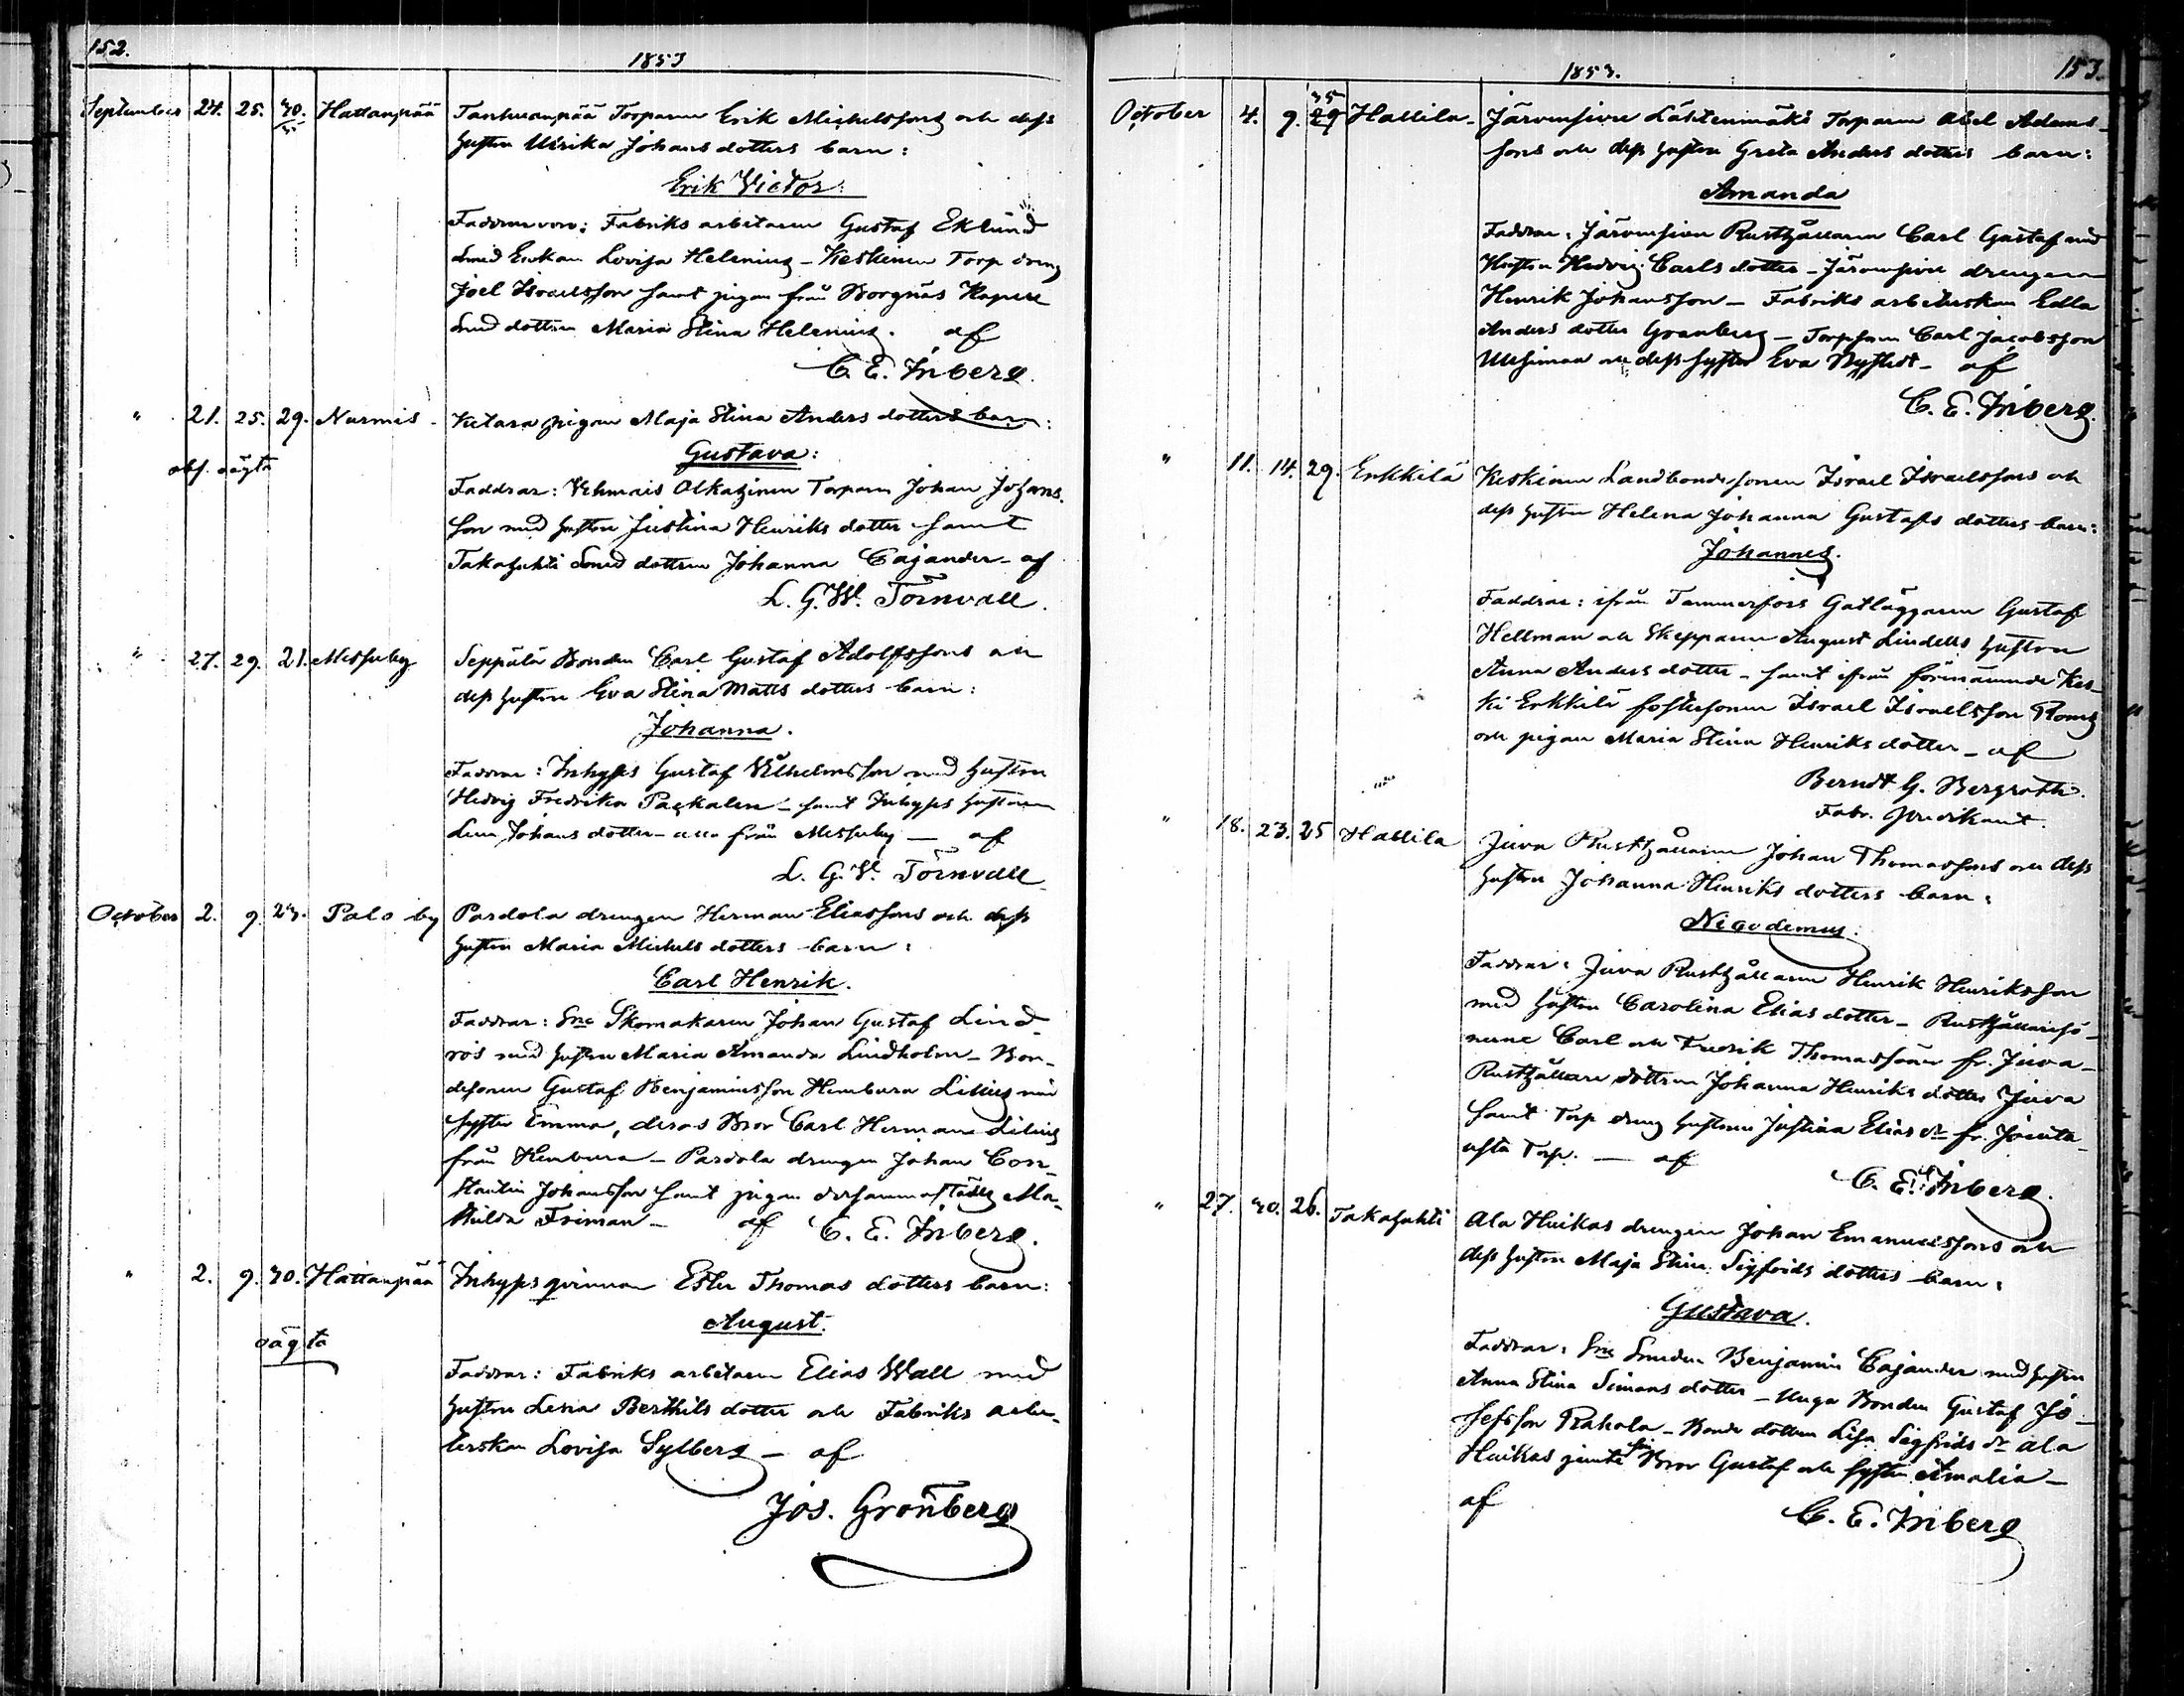 152.
1853
September 24. 25. 30. Hattanpää Tanhuanpää Torparen Erik Michelssons och dess
hustru Ulrika Johans dotters barn:
Erik Victor.
Faddrar voro: Fabriks arbetaren Gustaf Eklund
Smed Enkan Lovisa Helenius – Keskinen Torp dreng
Joel Israelsson samt pigan från Borgnäs Kapell
Smed dottren Maria Stina Helenius. af
C. E. Inberg.
" 21. 25. 29. Nurmis – Ketara pigan Maja Stina Anders dotters barn:
obs. oägta
Gustava:
Faddrar: Vehmais Alkazinen Torparen Johan Johans-
son med hustru Justina Henriks dotter samt
Takahuhti Smed dottren Johanna Cajander – af
L. G. W. Törnvall.
" 27. 29. 21. Messuby Seppälä Bonden Carl Gustaf Adolfssons och
dess hustru Eva Stina Matts dotters barn:
Johanna.
Faddrar: Inhyses Gustaf Wilhelmsson med hustru
Hedvig Fredrika Packalen – samt Inhyses hustrun
Lena Johans dotter – alla från Messuby — af
L. G. W. Törnvall
October 2. 9. 23. Palo by Pardola drengen Herman Eliassons och dess
hustru Maria Michels dotters barn:
Carl Henrik.
Faddrar: Sne Skomakaren Johan Gustaf Lind-
ros med hustru Maria Amanda Lindholm – Bon-
desonen Gustaf Benjaminsson Hembura Lilius med
syster Emma, deras Bror Carl Herman Lilius
från Hembura – Pardola drengen Johan Con-
stantin Johansson samt pigan dersammastädes Ma-
thilda Friman – af C. E. Inberg.
" 2. 9. 30. Hattanpää Inhyses qvinnan Ester Thomas dotters barn:
August.
oägta
Faddrar: Fabriks arbetaren Elias Wall med
hustru Lesia Berthils dotter och Fabriks arbe-
terskan Lovisa Sylberg – af
Jos. Grönberg
1853.
153.
October 4. 9. 35 29 Hallila – Järvensivu Lästenmäki Torparen Abel Adams-
sons och dess hustru Greta Anders dotters barn:
Amanda
Faddrar: Järvensivu Rusthållaren Carl Gustaf med
Hustru Hedvig Carls dotter – Järvensivu drengen
Henrik Johansson – Fabriks arbeterskan Edla
Anders dotter Granberg – Torpsonen Carl Jacobsson
Uusimaa och dess syster Eva Nystedt – af
C. E. Inberg.
" 11. 14. 29. Enkkilä Keskinen Landbondesonen Israel Israelssons och
dess hustru Helena Johanna Gustafs dotters barn:
Johannes.
Faddrar: ifrån Tammerfors Gatläggaren Gustaf
Hellman och Skepparen August Lindells hustru
Anna Anders dotter – samt ifrån förenämnde Kes-
ki Erkkilä fostersonen Israel Israelsson Roms
och pigan Maria Stina Henriks dotter – af
Berndt G. Bergroth.
Fabr. Predikant.
" 18. 23. 25 Hallila Juva Rusthållaren Johan Thomassons och dess
hustru Johanna Henriks dotters barn:
Nicodemus.
Faddrar: Juva Rusthållaren Henrik Henriksson
med hustru Carolina Elias dotter – Rusthållaresö-
nerne Carl och Fredrik Thomassöner fr. Juva –
Rusthållare dottren Johanna Henriks dotter Juva
samt Torp dreng hustrun Justina Elias dr fr.
Torp. — af
C. E. Inberg.
" 27. 30. 26. Takahuhti Ala Huikas drengen Johan Emanuelssons och
dess hustru Maja Stina Sigfrids dotters barn:
Gustava.
Faddrar: Sne Smeden Benjamin Cajander med hustru
Anna Stina Simons dotter – unga Bonden Gustaf Jo-
sefsson Rahola – Bonde dottren Lisa Sigfrids dr Ala
Huikas jemte sin Bror Gustaf och syster Amalia –
af
C. E. Inberg